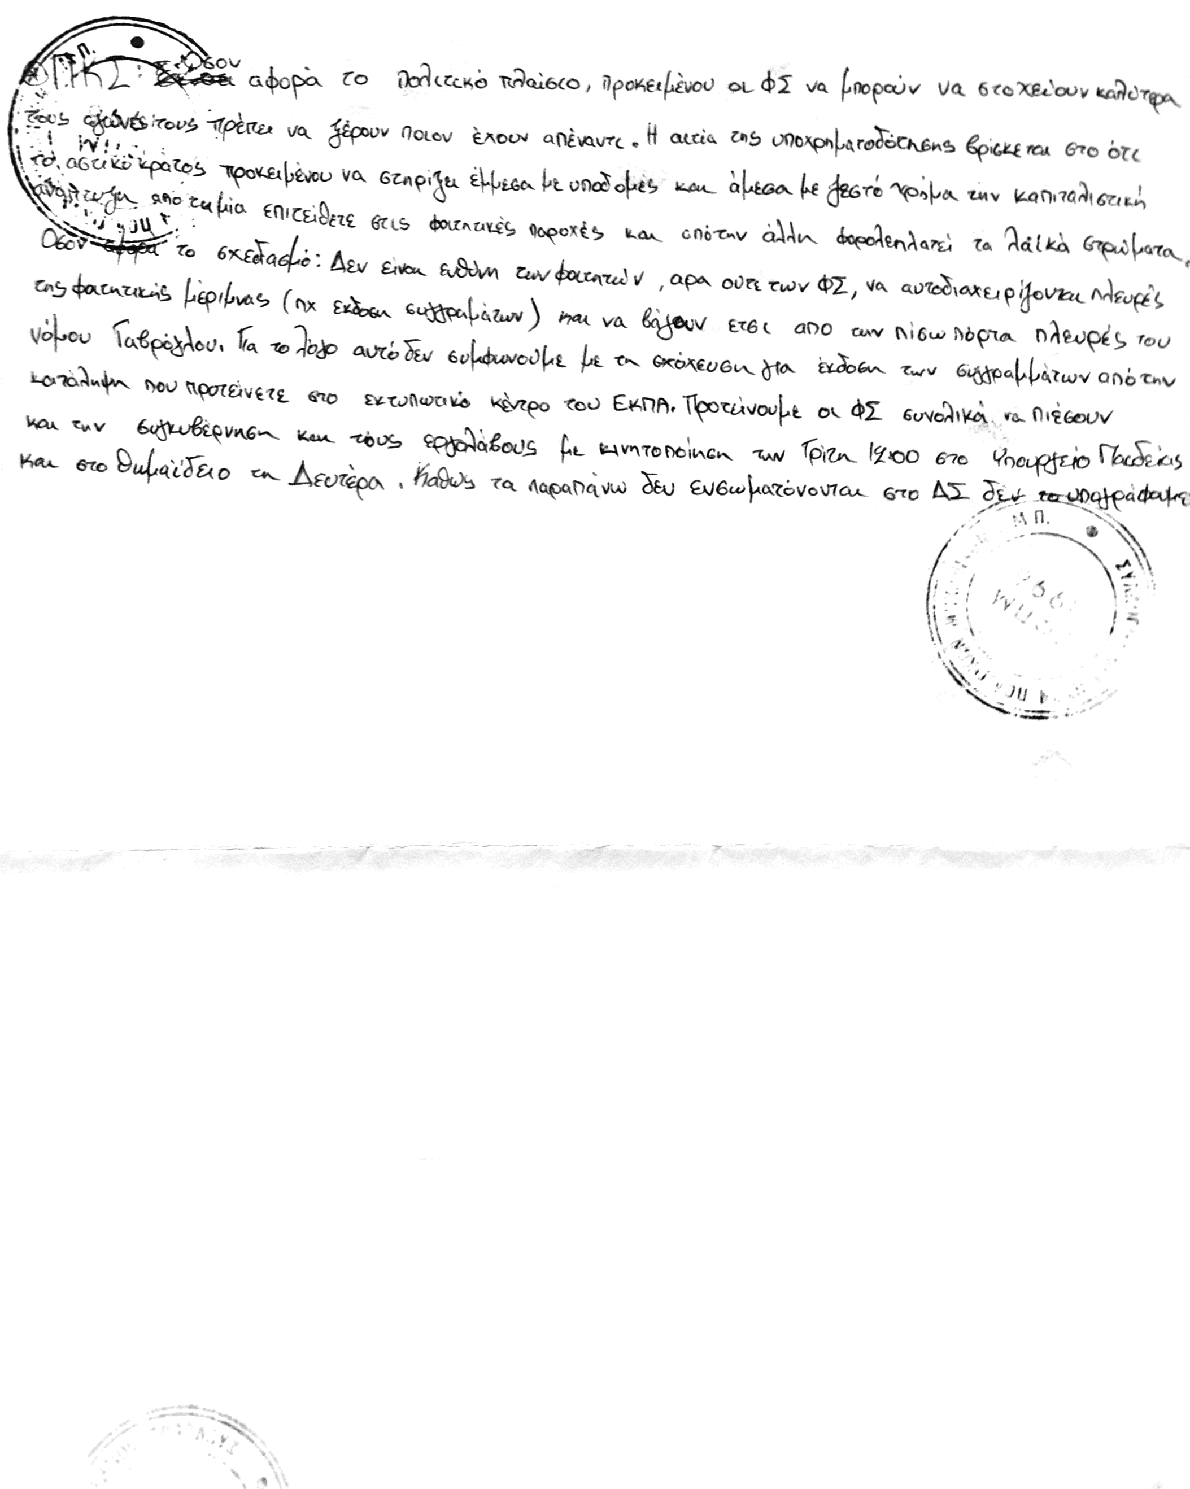 ΠΚΣ: Όσον αφορά το πολιτικό πλαίσιο, προκειμένου οι ΦΣ να μπορούν να στοχεύουν καλύτερα
τους αγώνες τους πρέπει να ξέρουν ποιον έχουν απέναντι. Η αιτία της υποχρηματοδότησης βρίσκεται στο ότι
το αστικό κράτος προκειμένου να στηρίξει έμμεσα με υποδομές και άμεσα με ζεστό χρήμα την καπιταλιστική
ανάπτυξη από τη μία επιτείθετε στις φοιτητικές παροχές και από την άλλη φοροληλατεί τα λαϊκά στρώματα.
Όσον αφορά το σχεδιασμό: Δεν είναι ευθύνη των φοιτητών, αρα ούτε των ΦΣ, να αυτοδιαχειρίζονται πλευρές
της φοιτητικής μέριμνας (πχ έκδοση συγγραμάτων) και να βάζουν ετσι από την πίσω πόρτα πλευρές του
νόμου Γαβρόγλου. Για το λόγο αυτό δεν συμφωνούμε με τη στόχευση για έκδοση των συγγραμμάτων από την
κατάληψη που προτείνετε στο εκτυπωτικό κέντρο του ΕΚΠΑ. Προτείνουμε οι ΦΣ συνολικά να πιέσουν
και την συγκυβέρνηση και τους εργολάβους με κινητοποίηση την Τρίτη 12:00 στο Υπουργείο Παιδείας
και στο Θωμαΐδειο τη Δευτέρα. Καθώς τα παραπάνω δεν ενσωματόνονται στο ΔΣ δεν το υπογράφαμε
ΜΠ.